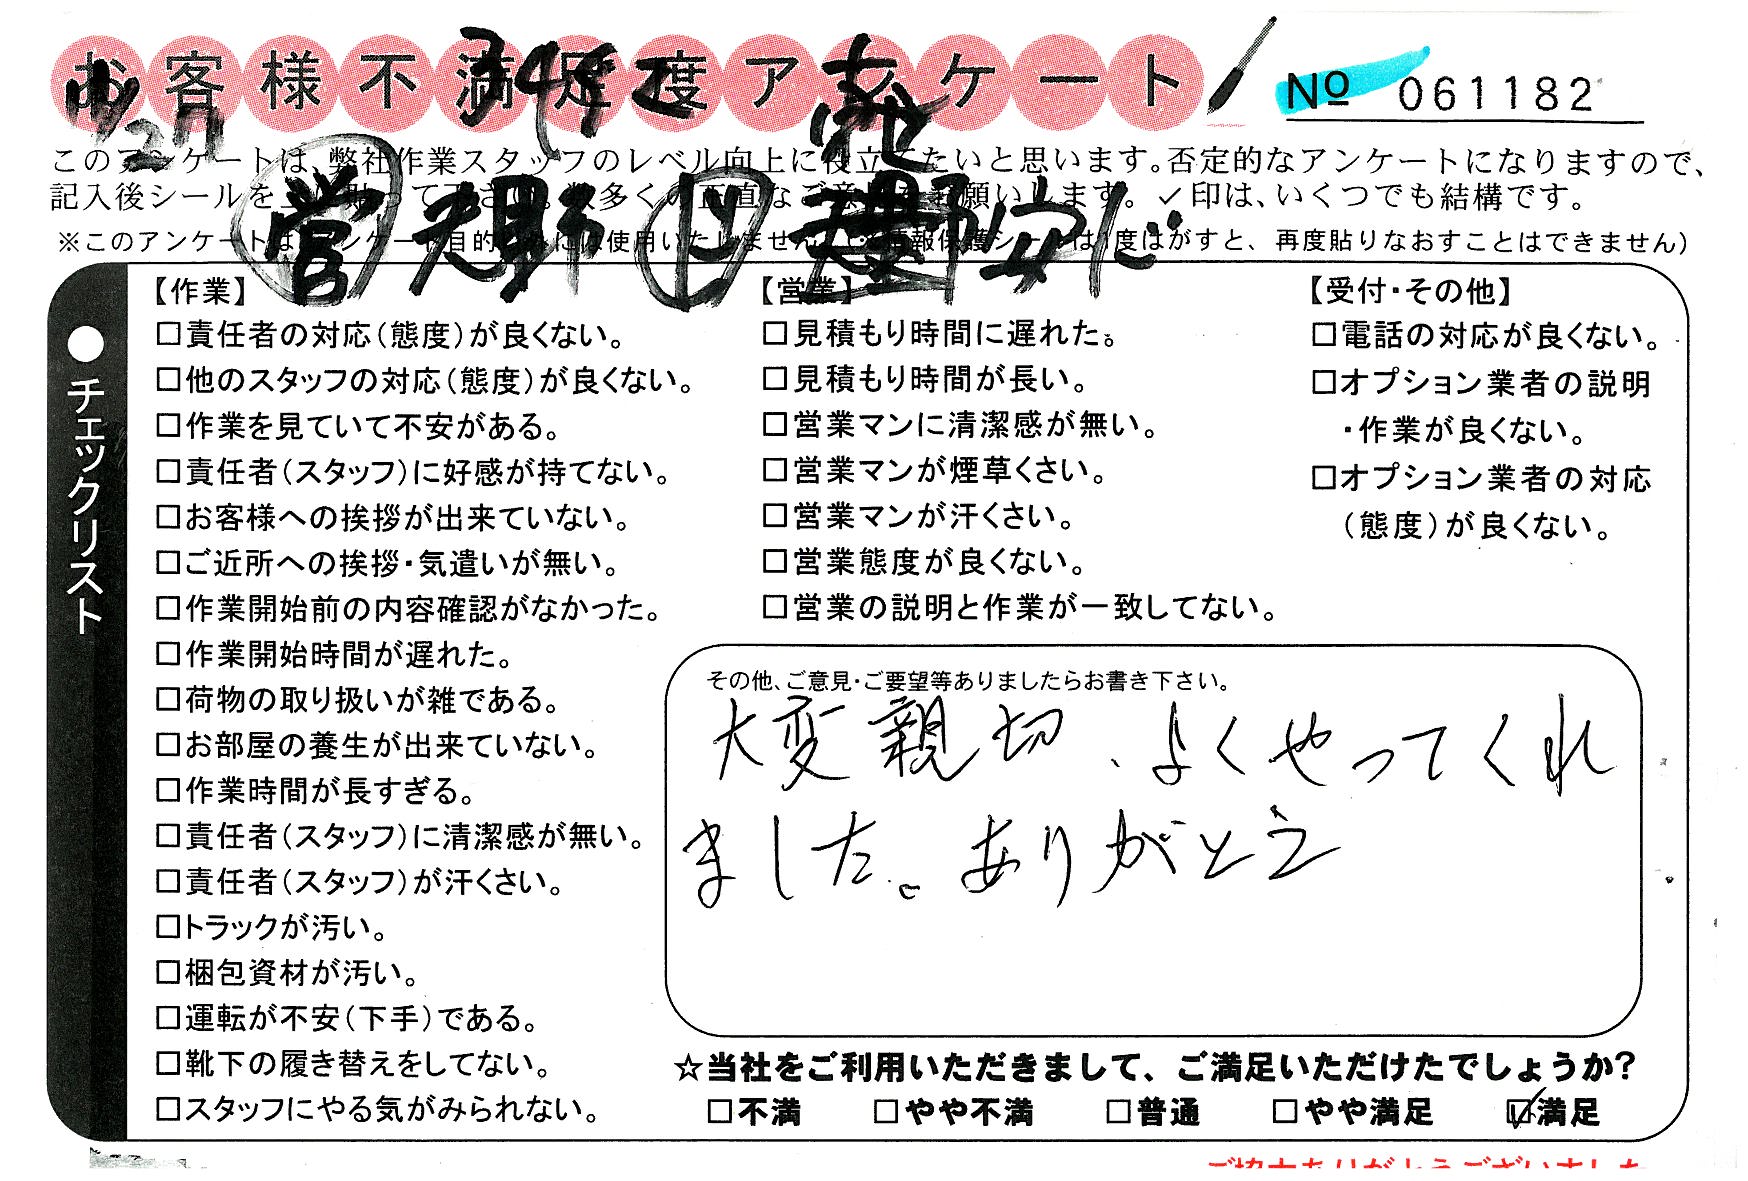 お客様不満足度アンケート
No 061182
このアンケートは、弊社作業スタッフのレベル向上に役立てたいと思います。否定的なアンケートになりますので、
記入後シールを上に貼って下さい。数多くの正直なご意見をお願いします。✓印は、いくつでも結構です。
※このアンケートはアンケート目的以外には使用いたしません。(※情報保護シールは1度はがすと、再度貼りなおすことはできません)
3452
営
●チェックリスト
【作業】
□責任者の対応(態度)が良くない。
□他のスタッフの対応(態度)が良くない。
□作業を見ていて不安がある。
□責任者(スタッフ)に好感が持てない。
□お客様への挨拶が出来ていない。
□ご近所への挨拶・気遣いが無い。
□作業開始前の内容確認がなかった。
□作業開始時間が遅れた。
□荷物の取り扱いが雑である。
□お部屋の養生が出来ていない。
□作業時間が長すぎる。
□責任者(スタッフ)に清潔感が無い。
□責任者(スタッフ)が汗くさい。
□トラックが汚い。
□梱包資材が汚い。
□運転が不安(下手)である。
□靴下の履き替えをしてない。
□スタッフにやる気がみられない。
【営業】
□見積もり時間に遅れた。
□見積もり時間が長い。
□営業マンに清潔感が無い。
□営業マンが煙草くさい。
□営業マンが汗くさい。
□営業態度が良くない。
□営業の説明と作業が一致してない。
【受付・その他】
□電話の対応が良くない。
□オプション業者の説明
・作業が良くない。
□オプション業者の対応
(態度)が良くない。
その他、ご意見・ご要望等ありましたらお書き下さい。
大変親切、よくやってくれ
ました。ありがとう
☆当社をご利用いただきまして、ご満足いただけたでしょうか?
□不満 □やや不満 □普通 □やや満足 ☑満足
ご協力ありがとうございました